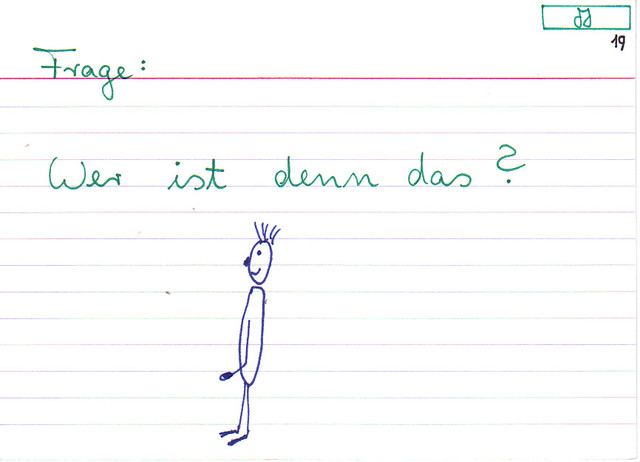 19
Frage:
Wer ist denn das?